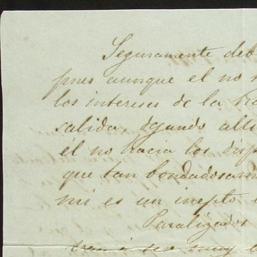 Seguramente deb
pues aunque el no
los intereses de la
salida, dejando alli
el no hacia las disp
que tan bondadosam
mi es un inepto
Paralizados